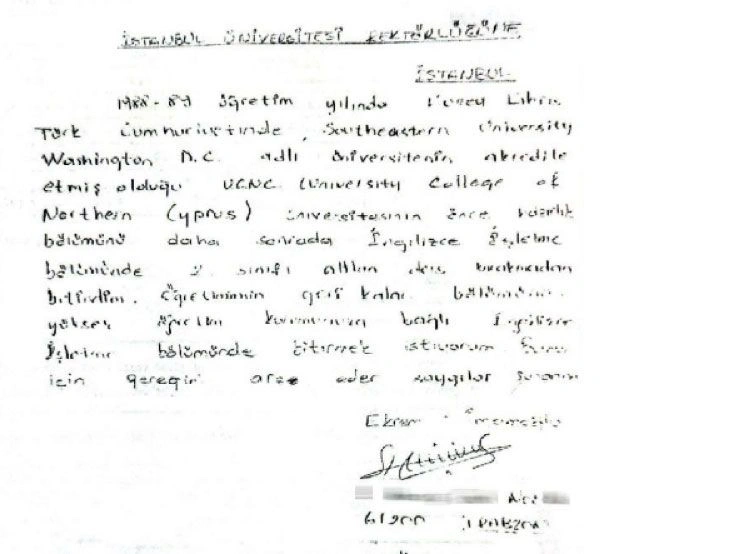 İSTANBUL ÜNİVERSİTESİ REKTÖRLÜĞÜNE
İSTANBUL
1988-89 öğretim yılında Kuzey Kıbrıs
Türk Cumhuriyetinde, Southeastern University
Washington D.C. adlı üniversitenin akredite
etmiş olduğu UCNC (University College of
Northern Cyprus) üniversitesinin önce hazırlık
bölümünü daha sonrada İngilizce İşletme
bölümünde 2. sınıfı alttan ders bırakmadan
bitirdim. Öğretimimin geri kalan bölümünü
yüksek öğretim kurumunuza bağlı İngilizce
İşletme bölümünde bitirmek istiyorum
için gereğini arz eder saygılar sunarım
Ekrem İmamoğlu
No:
61200 TRABZON